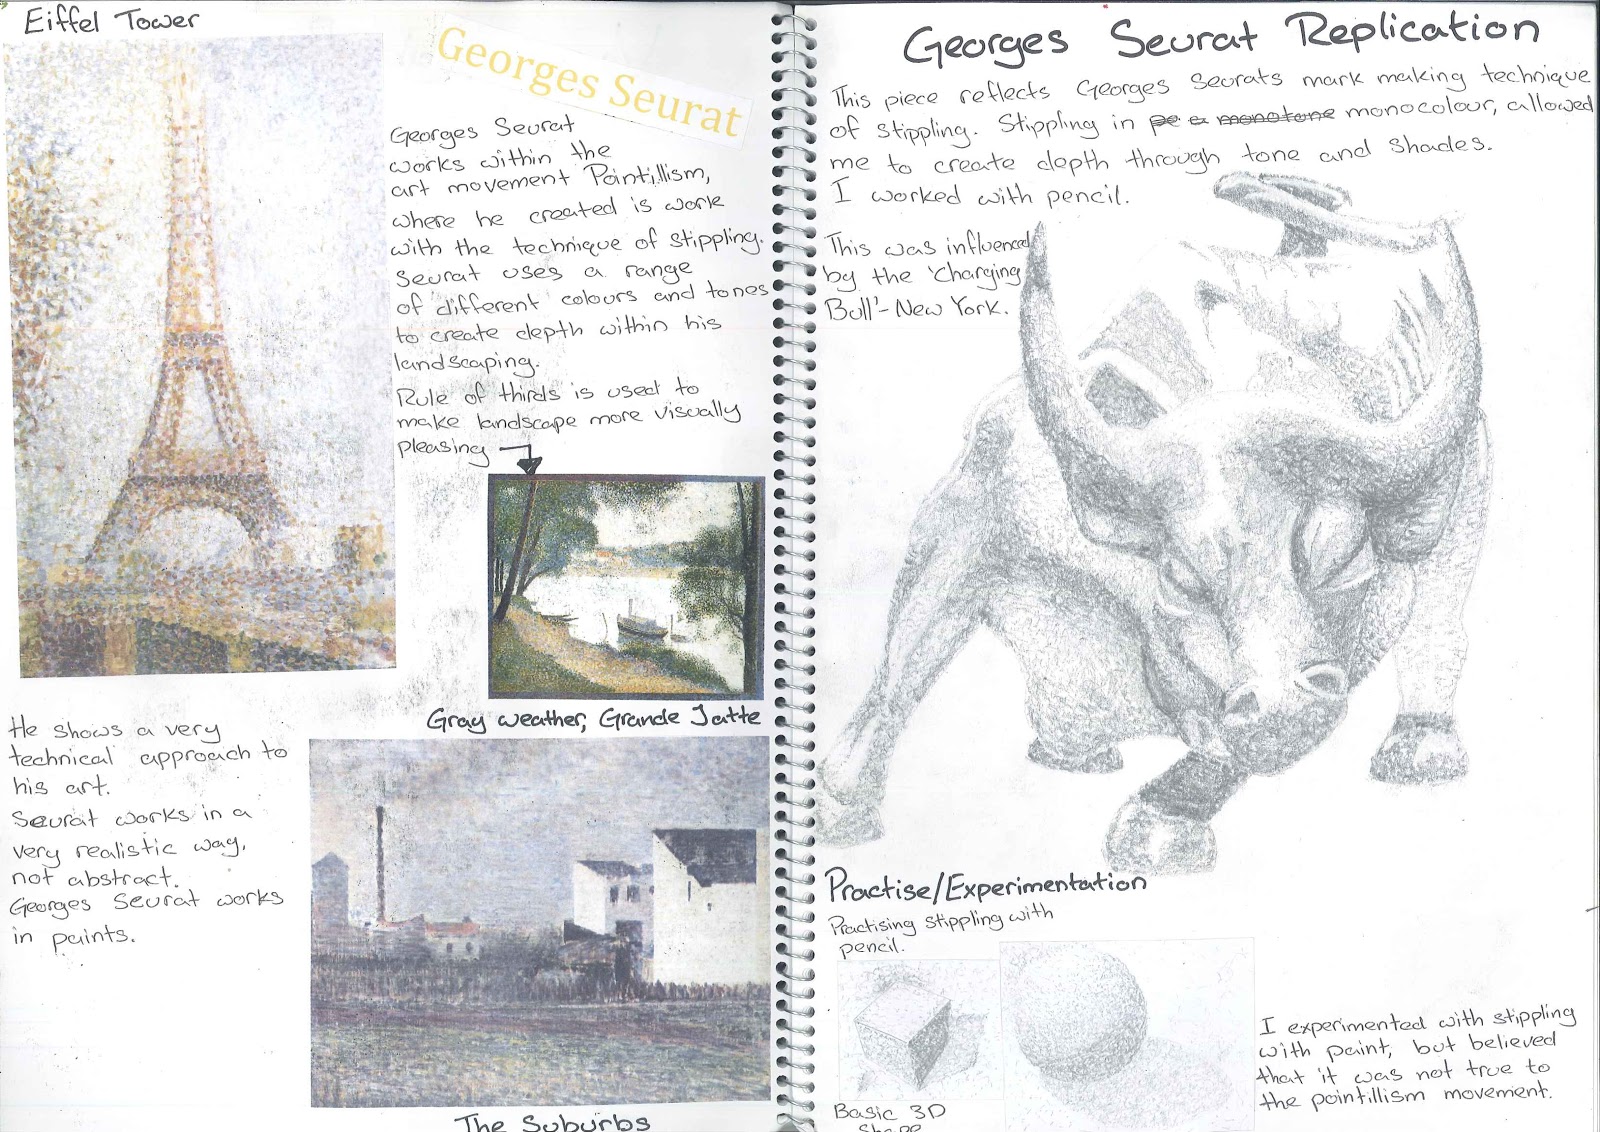 Eiffel Tower
Georges Seurat
Georges Seurat
works within the
art movement Pointillism,
where he created is work
with the technique of stippling.
Seurat uses a range
of different colours and tones
to create depth within his
landscaping.
Rule of thirds is used to
make landscape more visually
pleasing
Gray weather, Grande Jatte
He shows a very
technical approach to
his art.
Seurat works in a
very realistic way,
not abstract.
Georges Seurat works
in paints.
The Suburbs
Georges Seurat Replication
This piece reflects Georges Seurats mark making technique
of stippling. Stippling in pe a monotone monocolour, allowed
me to create depth through tone and shades.
I worked with pencil.
This was influenced
by the 'Charging
Bull' - New York.
Practise/Experimentation
Practising stippling with
pencil.
Basic 3D
Shape
I experimented with stippling
with paint, but believed
that it was not true to
the pointillism movement.